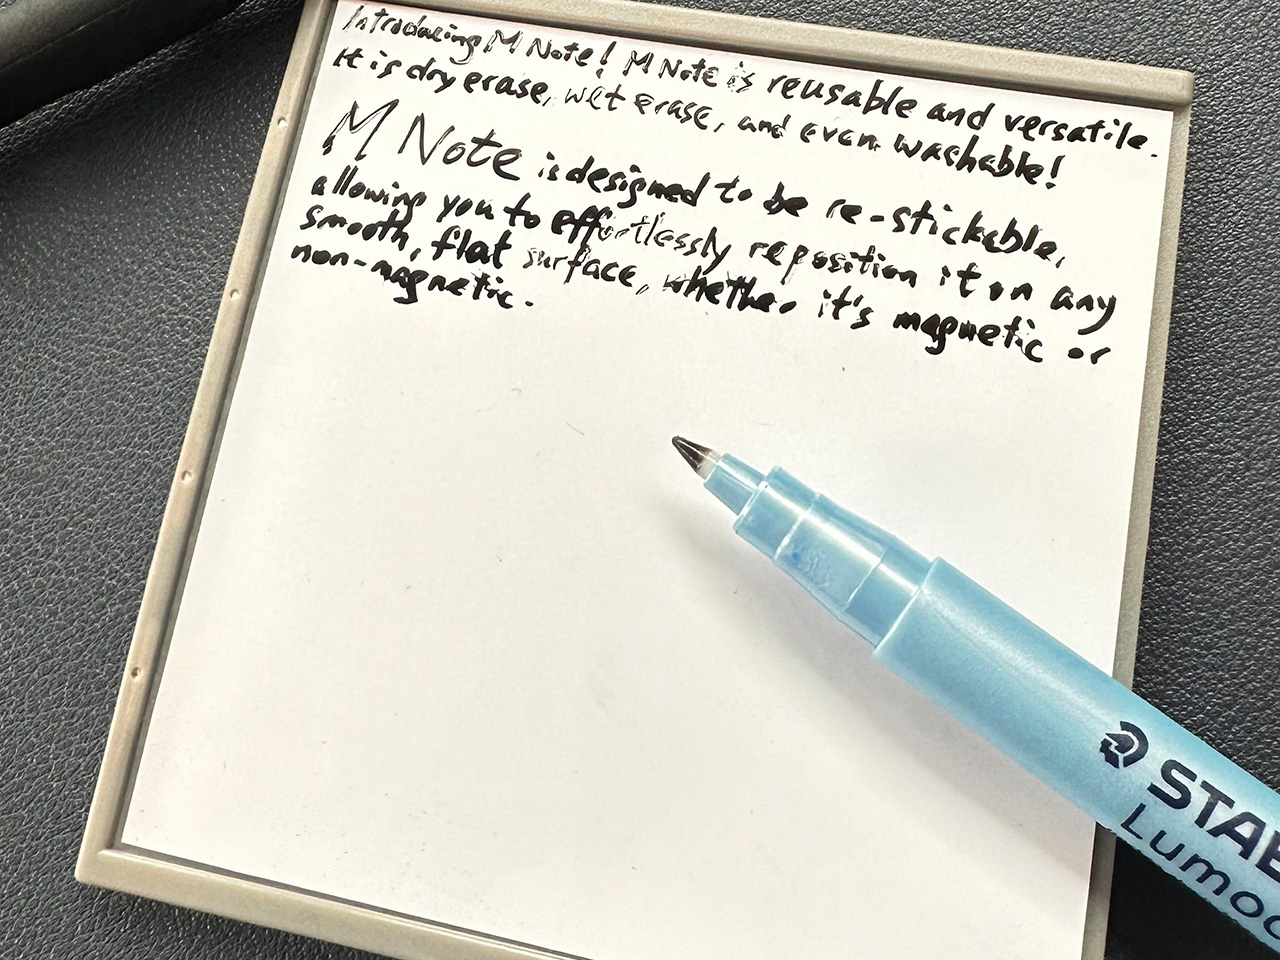 Introducing M Note! M Note is reusable and versatile.
It is dry erase, wet erase, and even washable!
M Note is designed to be re-stickable,
allowing you to effortlessly reposition it on any
smooth, flat surface, whether it's magnetic or
non-magnetic.
STAE
Lumoc